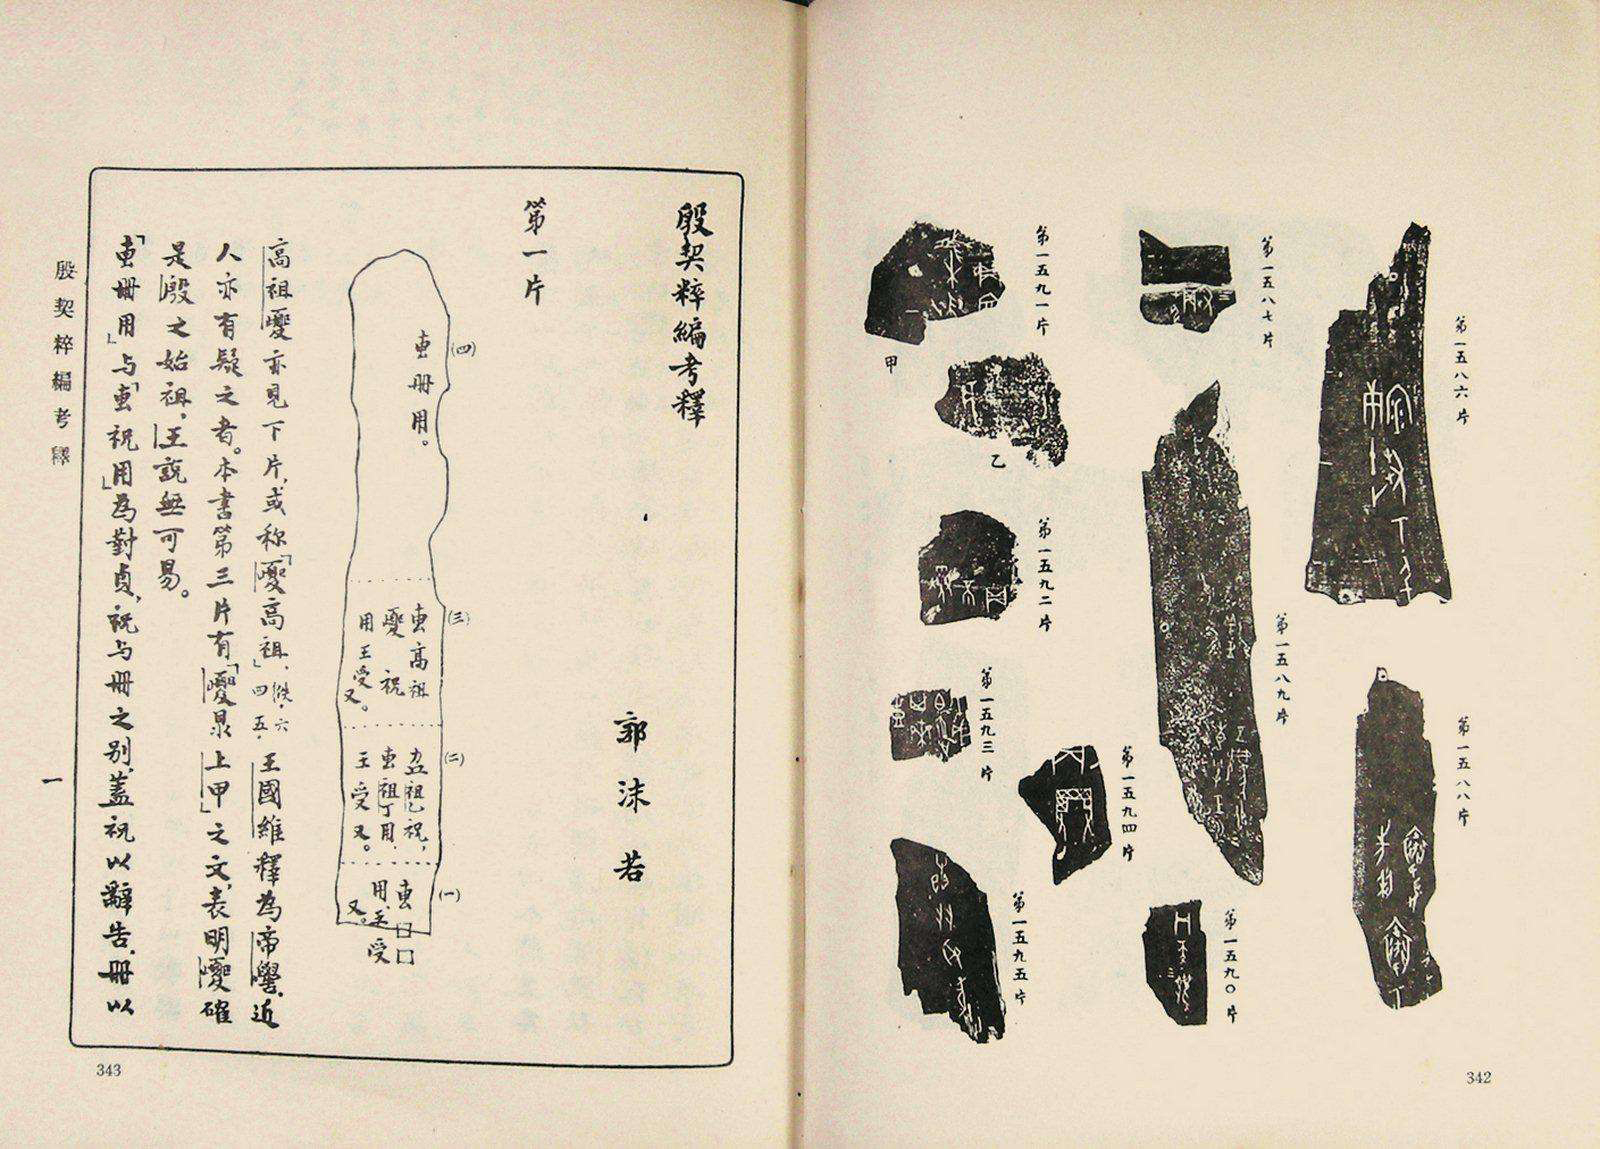 第一五八六片
第一五八七片
第一五八八片
第一五八九片
第一五九〇片
第一五九一片
甲
乙
第一五九二片
第一五九三片
第一五九四片
第一五九五片
342
殷契粹編考釋
郭沫若
第一片
(四)
叀冊用。
(三)
叀高祖
夒祝
用王受又。
(二)
祖乙祝，
叀祖丁用，
王受又。
(一)
叀□□
用，王受
又。
高祖夒亦見下片，或称「夒高祖」，佚·六四五·王國維釋為帝嚳，近
人亦有疑之者。本書第三片有「夒眔上甲」之文，表明夒確
是殷之始祖，王說無可易。
「叀冊用」与「叀祝用」為對貞，祝与冊之別，蓋祝以辭告，冊以
殷契粹編考釋
一
343